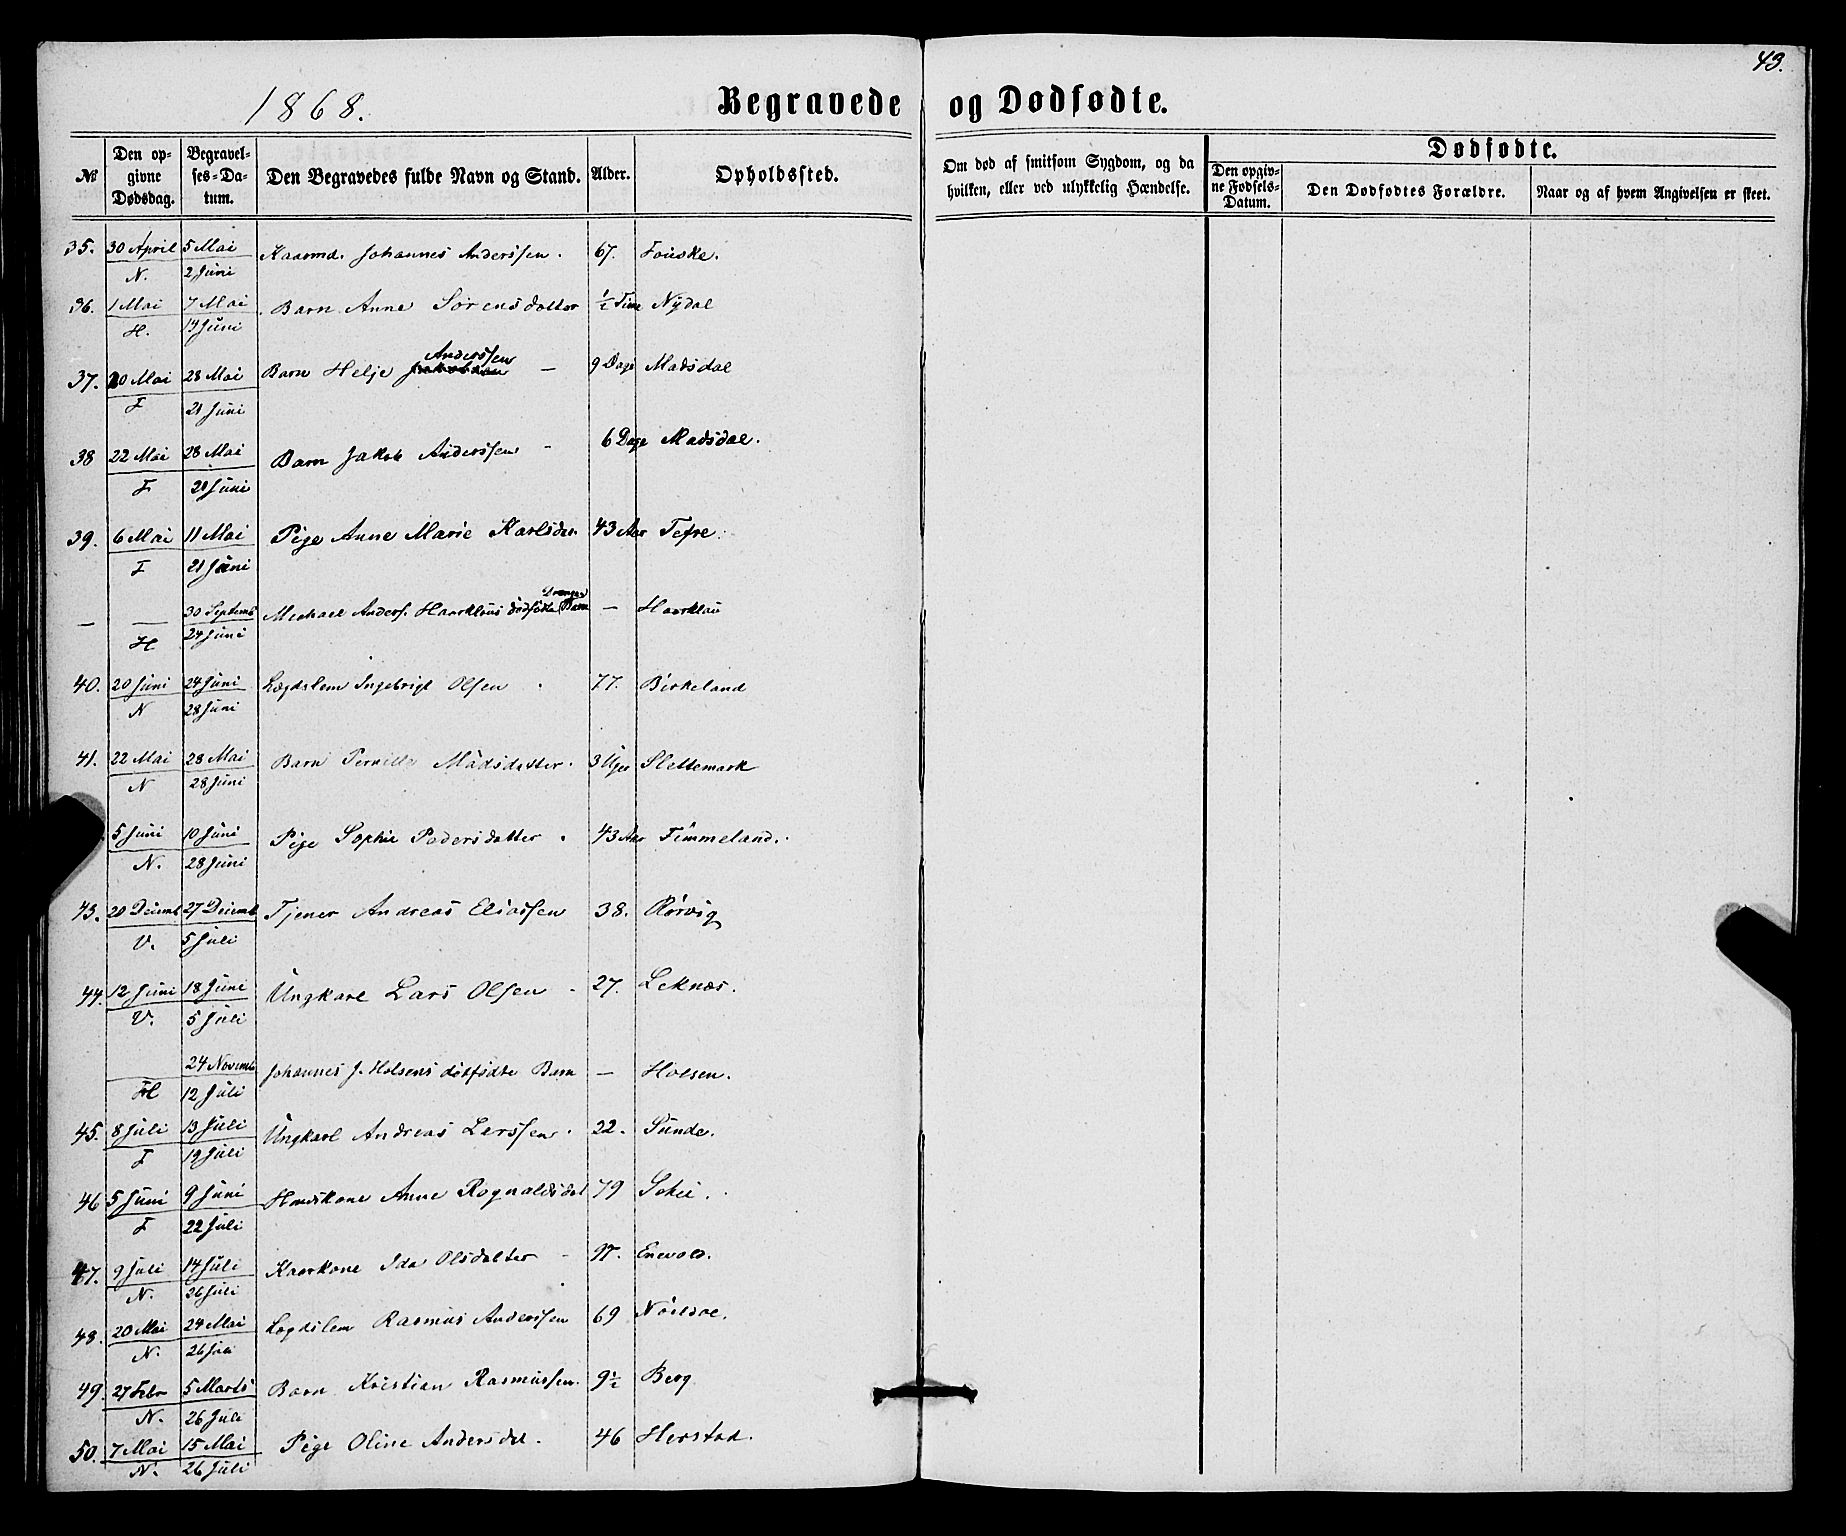 43.
1868. Begravede og Dødfødte.
№ Den opgivne Dødsdag. Begravelses-Datum. Den Begravedes fulde Navn og Stand. Alder. Opholdssted. Om død af smitsom Sygdom, og da hvilken, eller ved ulykkelig Hændelse. Dødfødte. Den opgivne Fødsels-Datum. Den Dødfødtes Forældre. Naar og af hvem Angivelsen er skeet.
35. 30 April 5 Mai Kaarmd. Johannes Anderssen. 67. Fouske.
N. 2 Juni
36. 1 Mai 7 Mai Barn Anne Sørensdatter ½ Time Nydal
H. 14 Juni
Anderssen
37. 20 Mai 28 Mai Barn Helje Jakobsen — 9 Dage Madsdal
F 21 Juni
38 22 Mai 28 Mai Barn Jakob Anderssen - 6 Dage Madsdal.
F 21 Juni
39. 6 Mai 11 Mai Pige Anne Marie Karlsdr. 43 Aar Tefre.
F 21 Juni
Drenge
— — 30 Septemb Michael Anders. Haarklaus dødfødte Barn — Haarklau
H 24 Juni
40. 20 Juni 24 Juni Lægdslem Ingebrigt Olsen 77. Birkeland
N 28 Juni
41. 22 Mai 28 Mai Barn Pernille Madsdatter. 3 Uger Slettemark
N 28 Juni
5 Juni 10 Juni Pige Sophie Pedersdatter. 43 Aar Timmeland.
N. 28 Juni
43. 20 Decemb 27 Decemb Tjener Andreas Eliassen 38. Rørvig
V. 5 Juli
44. 12 Juni 18 Juni Ungkarl Lars Olsen - 27. Leknæs.
V. 5 Juli
24 Novemb Johannes J. Holsens dødfødte Barn — Holsen.
H 12 Juli
45. 8 Juli 13 Juli Ungkarl Andreas Larssen. 22. Sunde.
F 19 Juli
46 5 Juni 9 Juni Huuskone Anne Rognaldsdat 79
F 22 Juli
47. 9 Juli 14 Juli Kaarkone Ida Olsdatter - 97. Enevold.
N. 26 Juli
48. 20 Mai 24 Mai Lægdslem Rasmus Anderssen 69
N. 26 Juli
49. 27 Febr 5 Marts Barn Kristian Rasmussen. 9½ Berg
N. 26 Juli
50. 7 Mai 15 Mai Pige Oline Andersdat. 46 Herstad.
N. 26 Juli